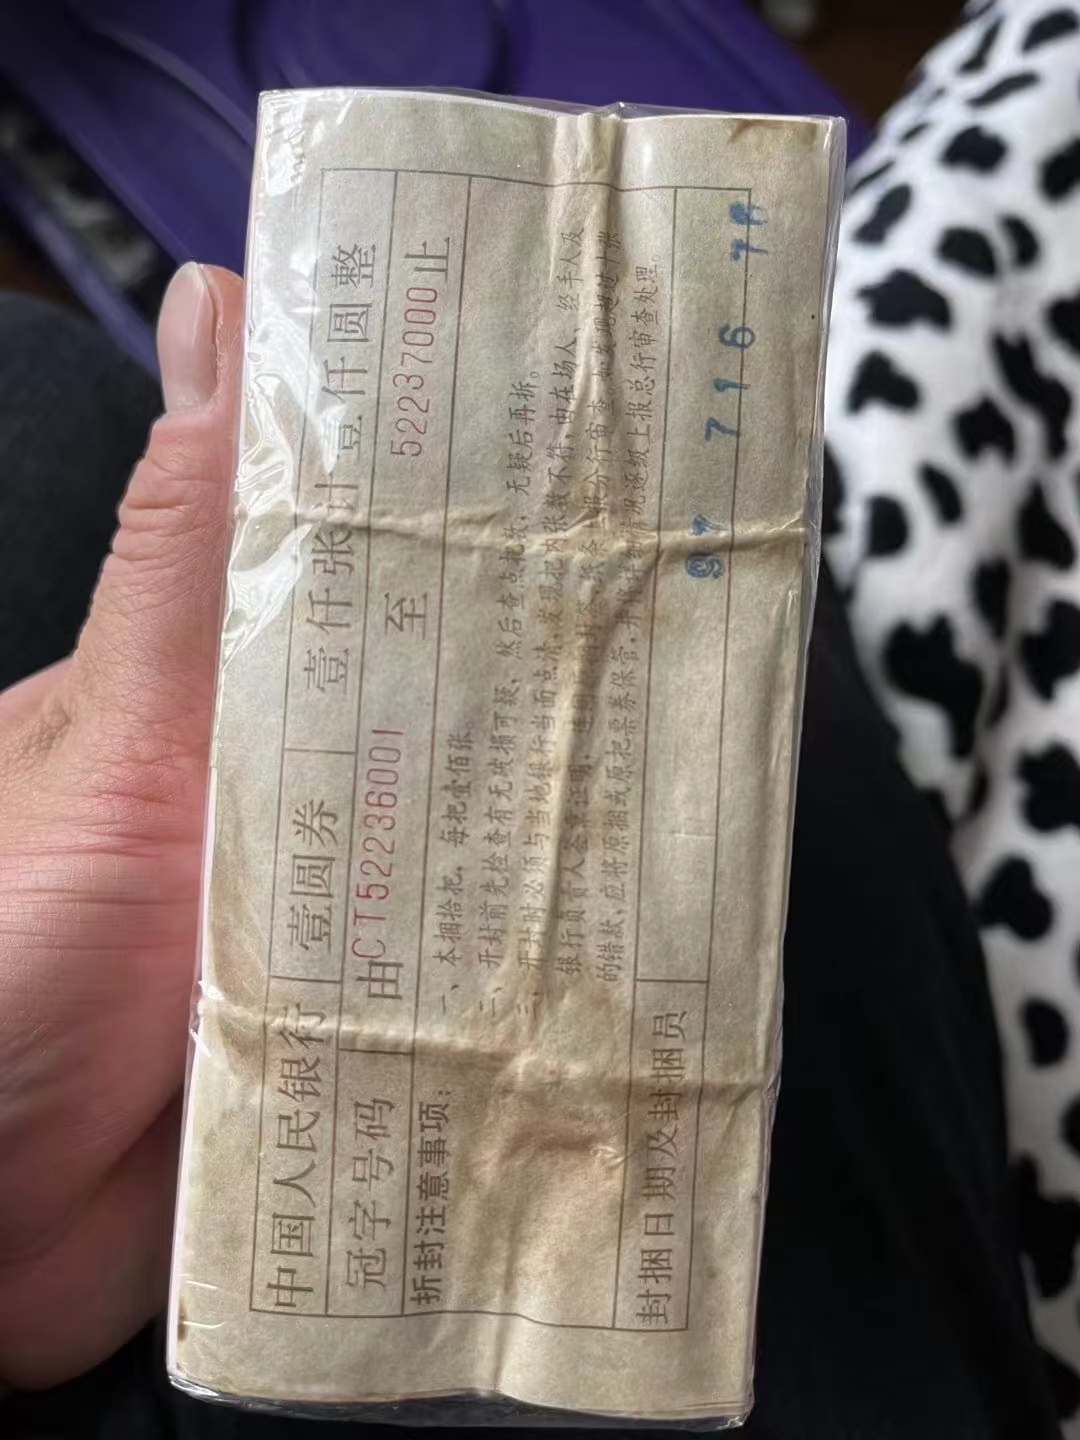 中国人民银行 壹圆券 壹仟张计壹仟圆整
冠字号码 由CT52236001 至 52237000止
折封注意事项:
一、本捆拾把,每把壹佰张。
二、开封前先检查有无破损可疑、然后查点把数、无疑后再拆。
三、开封时必须与当地银行当面点清,发现把内张数不符,由在场人、经手人及
银行负责人签章证明,连同 封签纸条上报分行审查,如发现超过十张
的错款,应将原捆或原把票券保管,并将 情况逐级上报总行审查处理。
封捆日期及封捆员 97 7 16